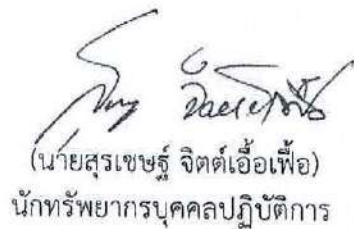 (นายสุรเชษฐ์ จิตต์เอื้อเฟื้อ)
นักทรัพยากรบุคคลปฏิบัติการ